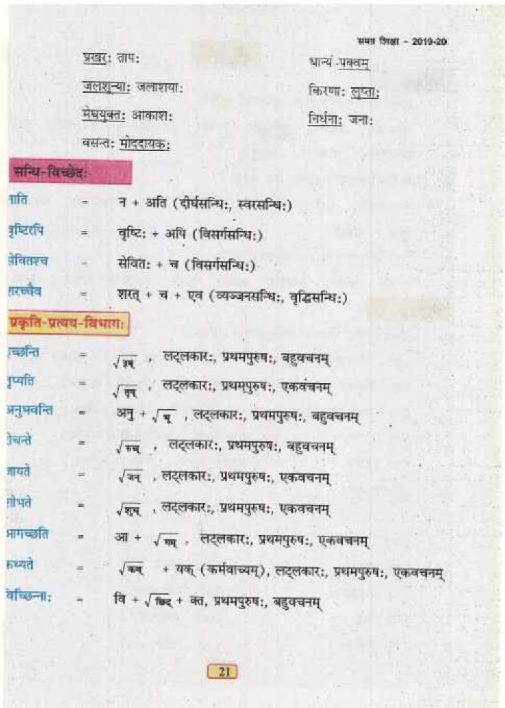 समग्र शिक्षा - 2019-20
प्रखर: ताप: धान्यं पक्वम्
जलशून्या: जलाशया: किरणा: लुप्ता:
मेघयुक्त: आकाश: निर्धना: जना:
वसन्त: मोददायक:
सन्धि-विच्छेद:
नाति = न + अति (दीर्घसन्धि:, स्वरसन्धि:)
वृष्टिरपि = वृष्टि: + अपि (विसर्गसन्धि:)
सेवितश्च = सेवित: + च (विसर्गसन्धि:)
शरच्चैव = शरत् + च + एव (व्यञ्जनसन्धि:, वृद्धिसन्धि:)
प्रकृति-प्रत्यय-विभाग:
इच्छन्ति = √इष् , लट्लकार:, प्रथमपुरुष:, बहुवचनम्
तृप्यति = √तृप् , लट्लकार:, प्रथमपुरुष:, एकवचनम्
अनुभवन्ति = अनु + √भू , लट्लकार:, प्रथमपुरुष:, बहुवचनम्
रोचन्ते = √रुच् , लट्लकार:, प्रथमपुरुष:, बहुवचनम्
जायते = √जन् , लट्लकार:, प्रथमपुरुष:, एकवचनम्
शोभते = √शुभ् , लट्लकार:, प्रथमपुरुष:, एकवचनम्
आगच्छति = आ + √गम् , लट्लकार:, प्रथमपुरुष:, एकवचनम्
कथ्यते = √कथ् + यक् (कर्मवाच्यम्), लट्लकार:, प्रथमपुरुष:, एकवचनम्
विच्छिन्ना: = वि + √छिद् + क्त, प्रथमपुरुष:, बहुवचनम्
21